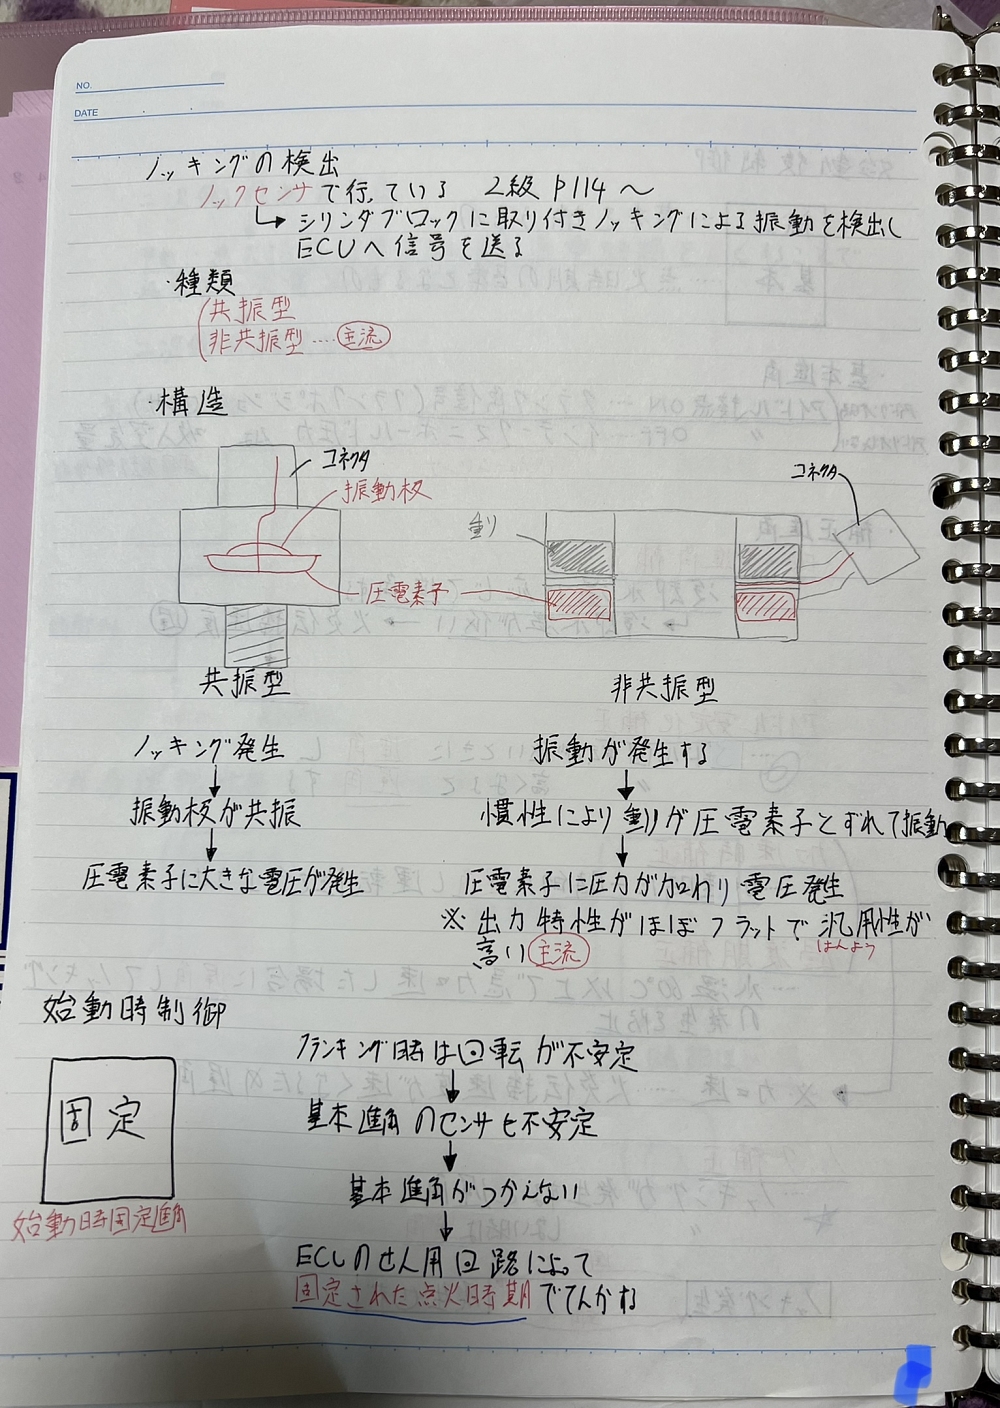 NO.
DATE
ノッキングの検出
ノックセンサで行っている 2級 P114〜
→シリンダブロックに取り付きノッキングによる振動を検出し
ECUへ信号を送る
・種類
共振型
非共振型……主流
・構造
コネクタ
振動板
圧電素子
共振型
重り
コネクタ
非共振型
ノッキング発生
↓
振動板が共振
↓
圧電素子に大きな電圧が発生
振動が発生する
↓
慣性により重りが圧電素子とずれて振動
↓
圧電素子に圧力が加わり電圧発生
※出力特性がほぼフラットで汎用性が
はんよう
高い 主流
始動時制御
固定
始動時固定進角
クランキング時は回転が不安定
↓
基本進角のセンサも不安定
↓
基本進角がつかえない
↓
ECUのせん用回路によって
固定された点火時期でてんかする